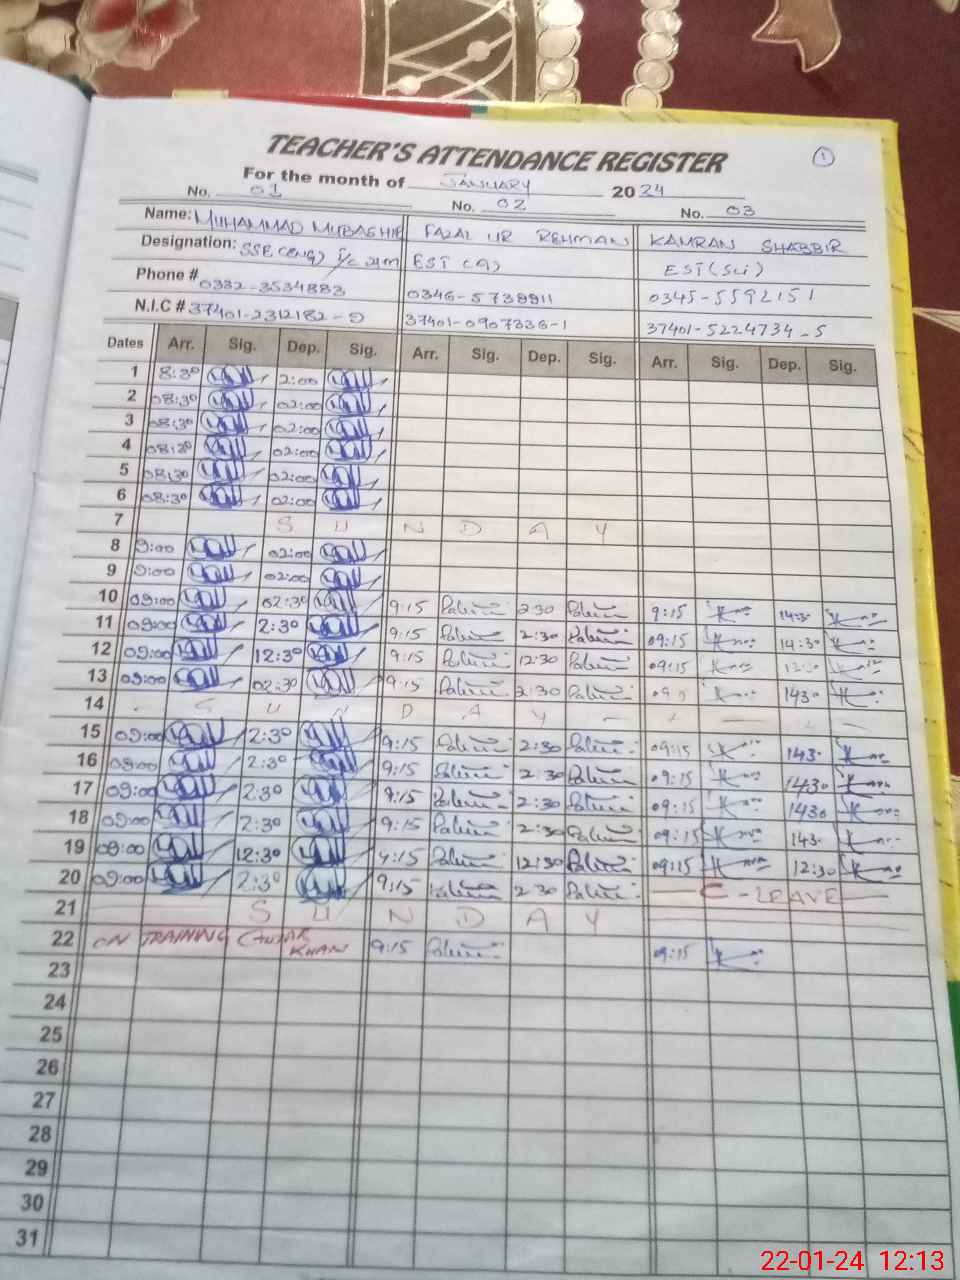 TEACHER'S ATTENDANCE REGISTER
1
For the month of JANUARY 2024
No. 01 No. 02 No. 03
Name: MUHAMMAD MUBASHIR FAZAL UR REHMAN KAMRAN SHABBIR
Designation: SSE (ENG) I/C EST EST (Sci)
Phone # 0332-3534883 0346-5738911 0345-5592151
N.I.C # 37401-2312182-9 37401-0907336-1 37401-5224734-5
Dates Arr. Sig. Dep. Sig. Arr. Sig. Dep. Sig. Arr. Sig. Dep. Sig.
1 8:30 2:00
2 08:30 02:00
3 08:30 02:00
4 08:30 02:00
5 08:30 02:00
6 08:30 02:00
7 S U N D A Y
8 9:00 02:00
9 9:00 02:00
10 09:00 02:30 9:15 2 30 9:15 14:30
11 09:00 2:30 9:15 2:30 09:15 14:30
12 09:00 12:30 9:15 12:30 09:15
13 09:00 02:30 9:15 2 30 1430
14 - S U N D A Y -
15 09:00 2:30 9:15 2:30 09:15 1430
16 09:00 2:30 9:15 2:30 09:15 1430
17 09:00 2:30 9:15 2:30 09:15 1430
18 09:00 2:30 9:15 2:30 09:15 1430
19 09:00 12:30 9:15 12:30 09:15 12:30
20 09:00 2:30 9:15 2 30 C - LEAVE
21 S U N D A Y
22 ON TRAINING GUJAR KHAN 9:15 09:15
23
24
25
26
27
28
29
30
31
22-01-24 12:13